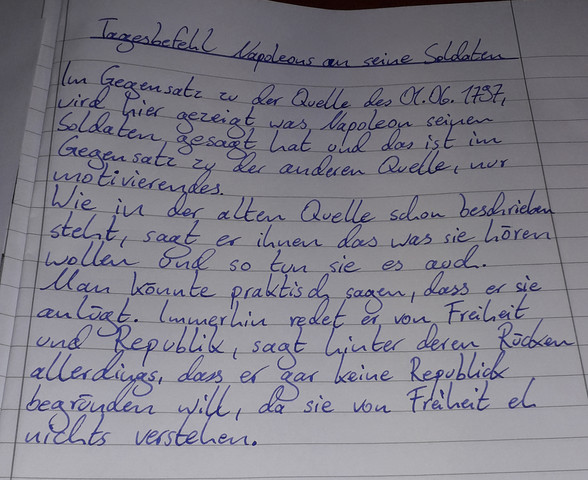 Tagesbefehl Napoleons an seine Soldaten
Im Gegensatz zu der Quelle des 01.06.1797,
wird hier gezeigt was Napoleon seinen
Soldaten gesagt hat und das ist im
Gegensatz zu der anderen Quelle, nur
motivierendes.
Wie in der alten Quelle schon beschrieben
steht, sagt er ihnen das was sie hören
wollen und so tun sie es auch.
Man könnte praktisch sagen, dass er sie
anlügt. Immerhin redet er von Freiheit
und Republik, sagt hinter deren Rücken
allerdings, dass er gar keine Republick
begründen will, da sie von Freiheit eh
nichts verstehen.